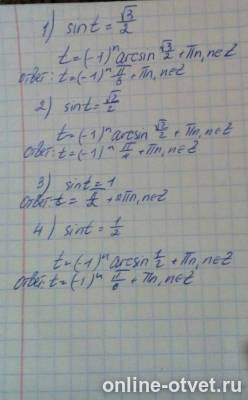 1) sin t = √3/2
t = (-1)ⁿ arcsin √3/2 + πn, n∈Z
ответ: t = (-1)ⁿ π/3 + πn, n∈Z
2) sin t = √2/2
t = (-1)ⁿ arcsin √2/2 + πn, n∈Z
ответ: t = (-1)ⁿ π/4 + πn, n∈Z
3) sin t = 1
ответ: t = π/2 + 2πn, n∈Z
4) sin t = 1/2
t = (-1)ⁿ arcsin 1/2 + πn, n∈Z
ответ: t = (-1)ⁿ π/6 + πn, n∈Z
online-otvet.ru